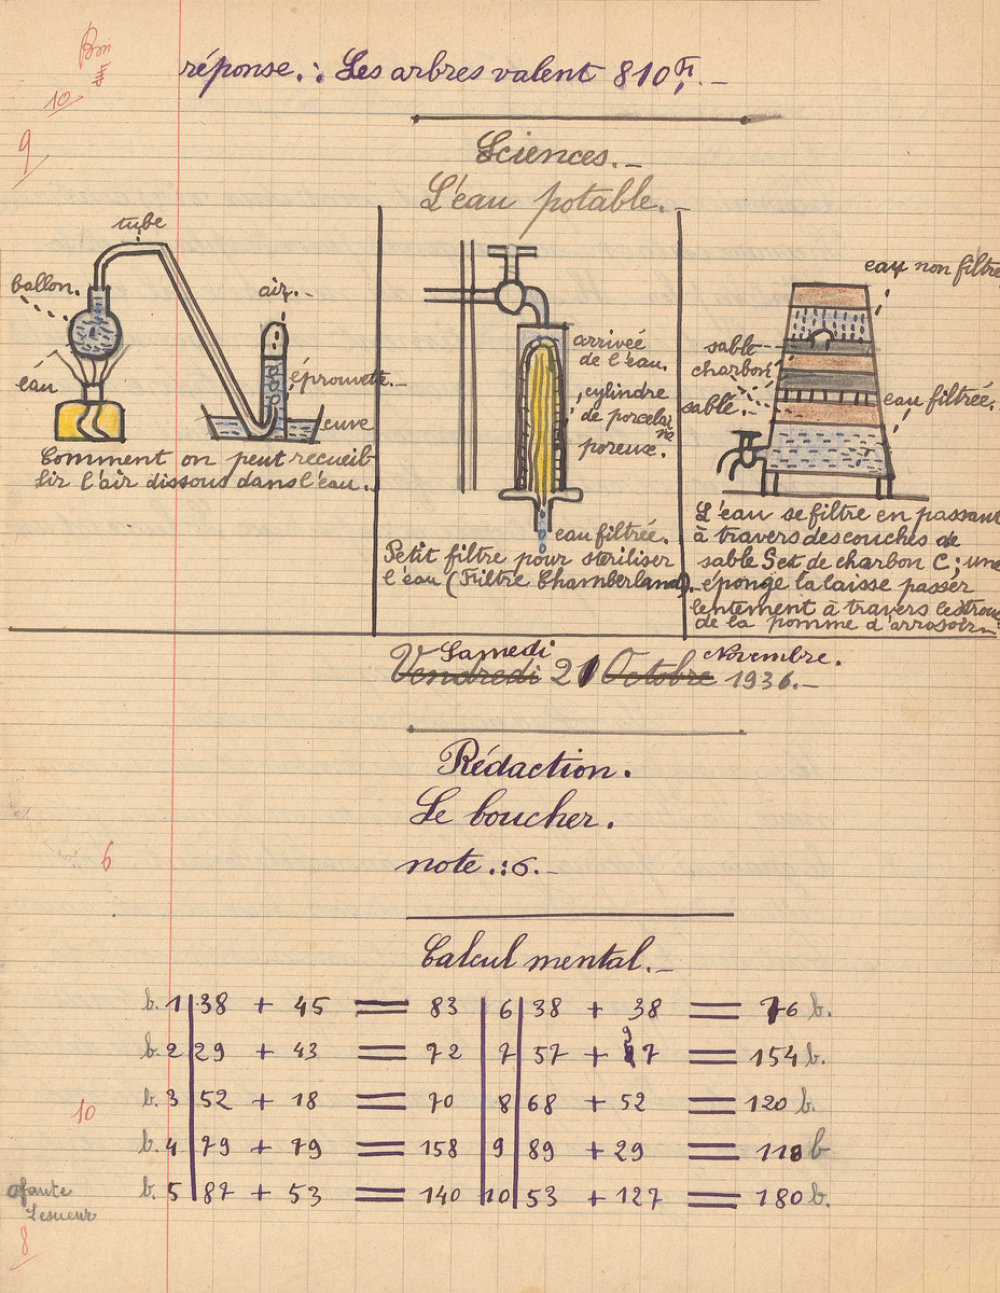 Bon
10
9
réponse.: Les arbres valent 810F.-
Sciences.-
L'eau potable.-
tube
ballon.
air.-
eau
éprouvette.-
cuve
Comment on peut recueil-
lir l'air dissous dans l'eau.
arrivée
de l'eau.
cylindre
de porcelai
ne
poreuse.
eau filtrée.
Petit filtre pour stériliser
l'eau (Filtre Chamberland).
eau non filtrée
sable
charbon
sable.
eau filtrée.
L'eau se filtre en passant
à travers des couches de
sable S et de charbon C; une
éponge la laisse passer
lentement à travers les trous
de la pomme d'arrosoir.-
Samedi Novembre.
Vendredi 21 Octobre 1936.-
Rédaction.
Le boucher.
6
note.:6.-
Calcul mental.-
b. 1 38 + 45 = 83 6 38 + 38 = 76 b.
b. 2 29 + 43 = 72 7 57 + 97 = 154 b.
10
b. 3 52 + 18 = 70 8 68 + 52 = 120 b.
b. 4 79 + 79 = 158 9 89 + 29 = 118 b
b. 5 87 + 53 = 140 10 53 + 127 = 180 b.
0 faute
Lesueur
8